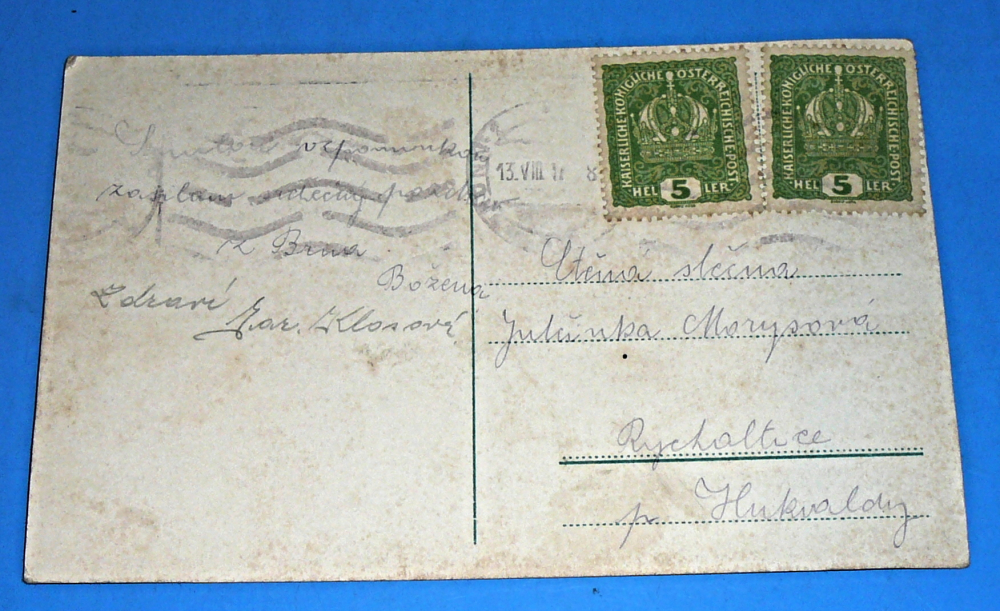 vzpomínkou
zaslání srdečný pozdrav
z Brna
Božena
Zdraví
Mar. Klosová
13.VIII 17 8
KAISERLICHE KÖNIGLICHE ÖSTERREICHISCHE POST
HEL 5 LER
KAISERLICHE KÖNIGLICHE ÖSTERREICHISCHE POST
HEL 5 LER
Ctěná slečna
Julinka Morysová
Rychaltice
p. Hukvaldy